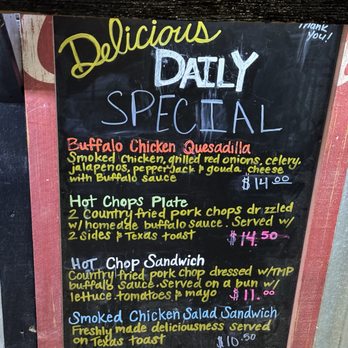 Thank
you!
Delicious
DAILY
SPECIAL
Buffalo Chicken Quesadilla
Smoked chicken, grilled red onions, celery,
jalapenos, pepperjack & gouda cheese
with Buffalo sauce
$14.00
Hot Chops Plate
2 Country fried pork chops drizzled
w/ homeade buffalo sauce. Served w/
2 sides & Texas toast $14.50
Hot Chop Sandwich
Country fried pork chop dressed w/TMP
buffalo sauce. Served on a bun w/
lettuce tomatoes & mayo $11.00
Smoked Chicken Salad Sandwich
Freshly made deliciousness served
on Texas toast $10.50